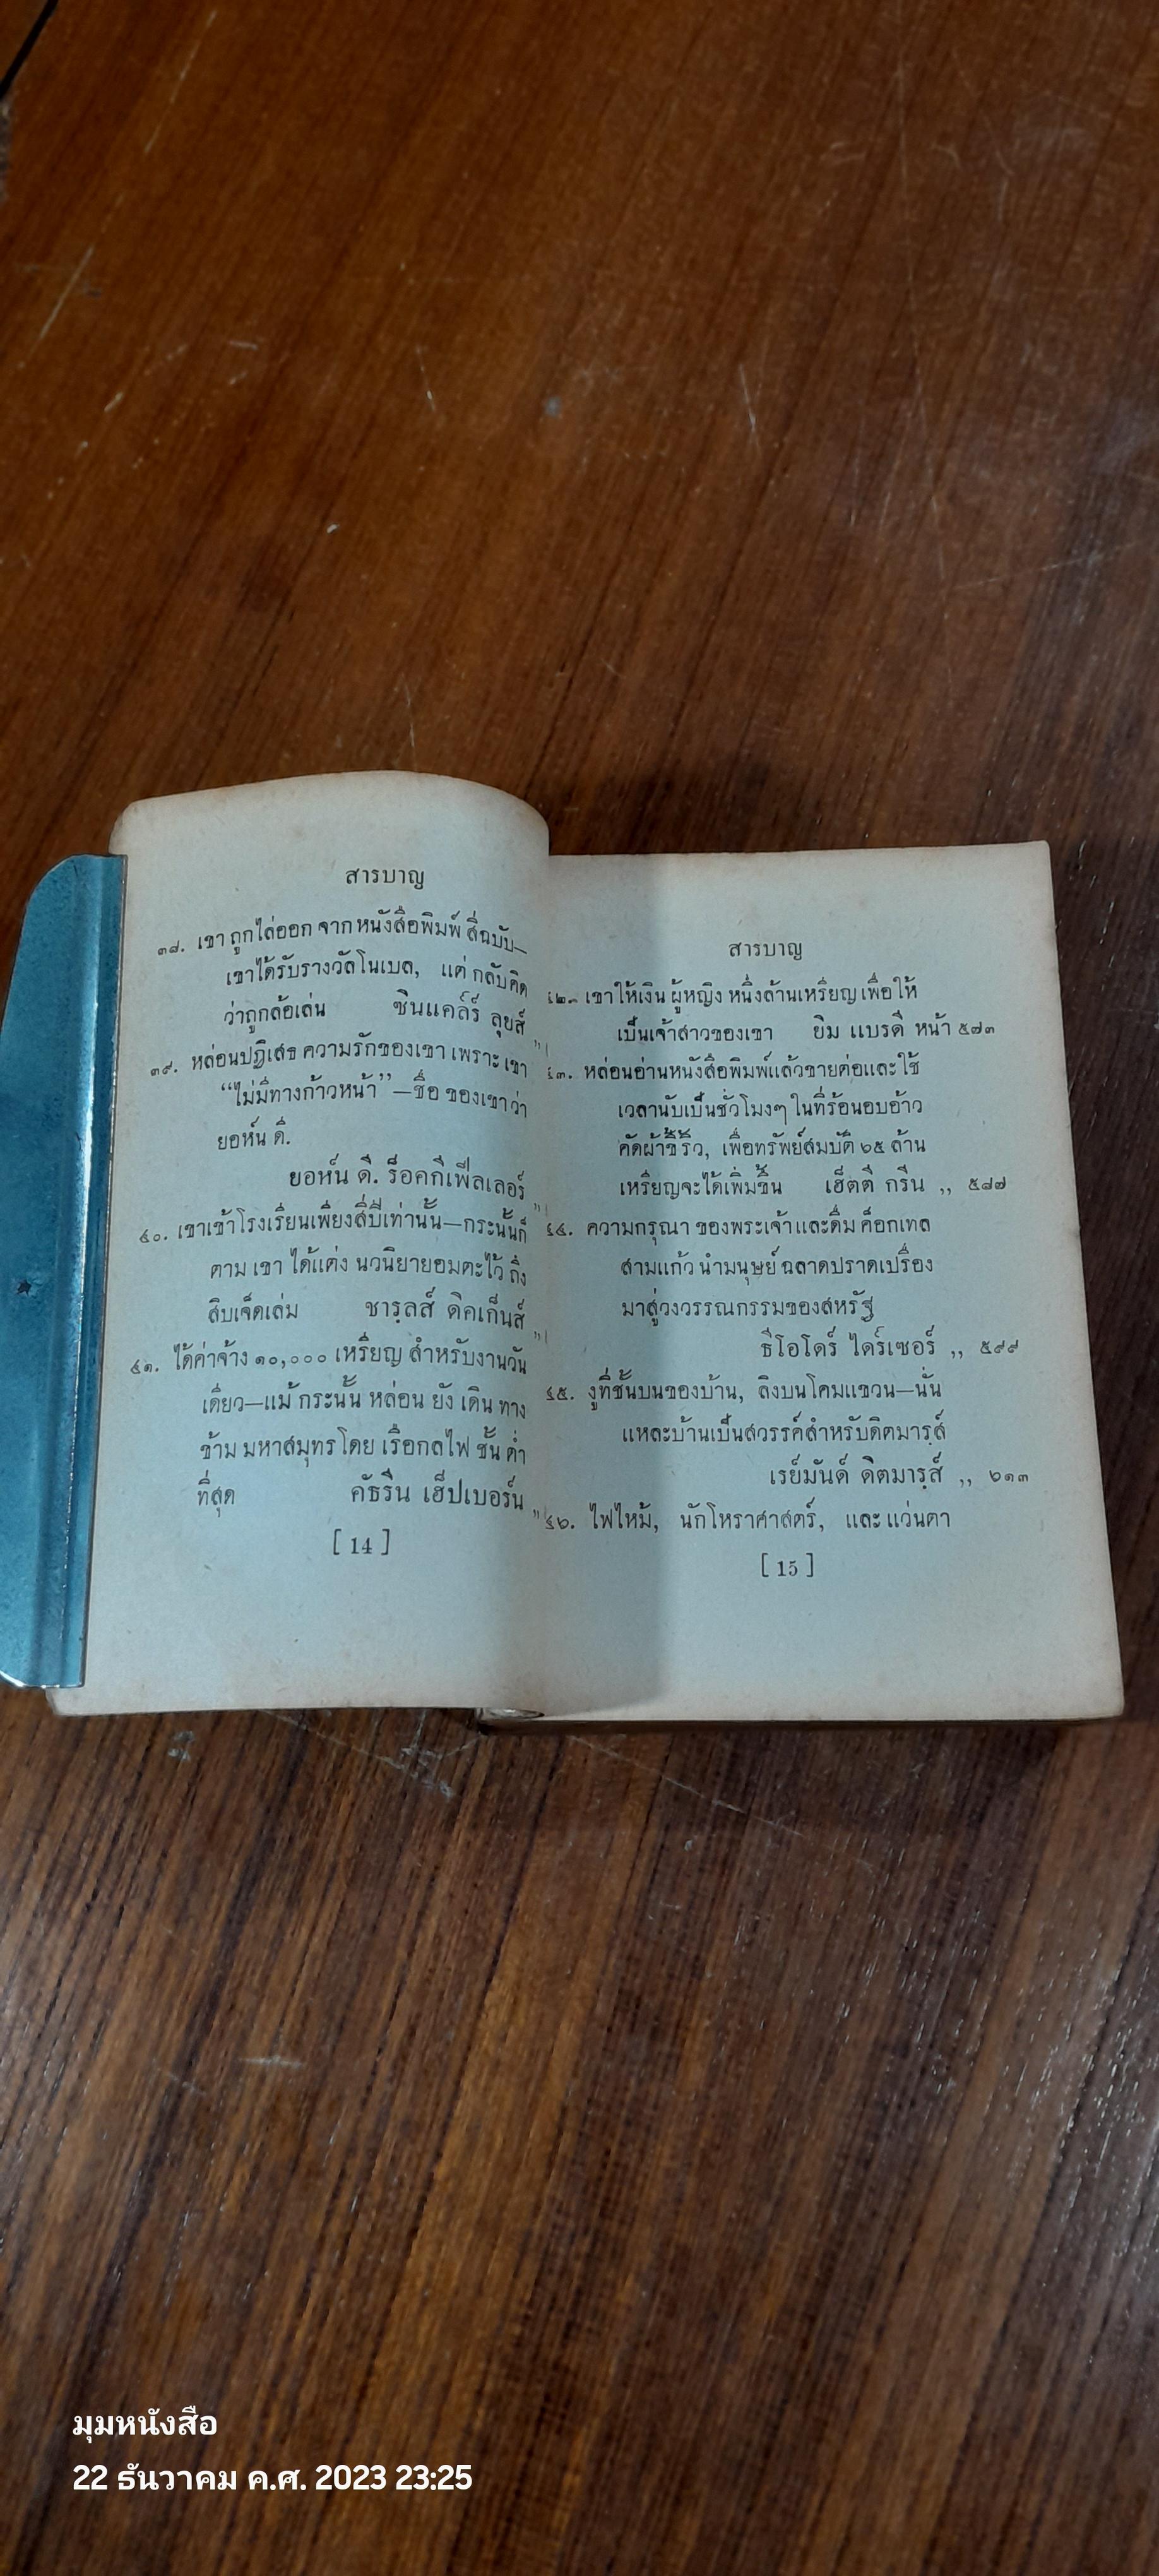 สารบาญ
๓๘. เขา ถูกไล่ออก จาก หนังสือพิมพ์ สี่ฉบับ—
เขาได้รับรางวัลโนเบล, แต่ กลับคิด
ว่าถูกล้อเล่น ซินแคล์ร์ ลุยส์ ,,
๓๙. หล่อนปฏิเสธ ความรักของเขา เพราะ เขา
“ไม่มีทางก้าวหน้า”—ชื่อ ของเขาว่า
ยอห์น ดี.
ยอห์น ดี. ร็อคกีเฟลเลอร์ ,,
๔๐. เขาเข้าโรงเรียนเพียงสี่ปีเท่านั้น—กระนั้นก็
ตาม เขา ได้แต่ง นวนิยายอมตะไว้ ถึง
สิบเจ็ดเล่ม ชารฺลส์ ดิคเก็นส์ ,,
๔๑. ได้ค่าจ้าง ๑๐,๐๐๐ เหรียญ สำหรับงานวัน
เดียว—แม้ กระนั้น หล่อน ยัง เดิน ทาง
ข้าม มหาสมุทร โดย เรือกลไฟ ชั้น ต่ำ
ที่สุด คัธรีน เฮ็ปเบอร์น ,,
[ 14 ]
สารบาญ
๔๒. เขาให้เงิน ผู้หญิง หนึ่งล้านเหรียญ เพื่อให้
เป็นเจ้าสาวของเขา ยิม แบรดี หน้า ๕๗๓
๔๓. หล่อนอ่านหนังสือพิมพ์แล้วขายต่อและใช้
เวลานับเป็นชั่วโมงๆ ในที่ร้อนอบอ้าว
คัดผ้าขี้ริ้ว, เพื่อทรัพย์สมบัติ ๖๕ ล้าน
เหรียญจะได้เพิ่มขึ้น เฮ็ตตี กรีน ,, ๕๘๗
๔๔. ความกรุณา ของพระเจ้าและดื่ม ค็อกเทล
สามแก้ว นำมนุษย์ ฉลาดปราดเปรื่อง
มาสู่วงวรรณกรรมของสหรัฐ
ธีโอโดร์ ไดร์เซอร์ ,, ๕๙๙
๔๕. งูที่ชั้นบนของบ้าน, ลิงบนโคมแขวน—นั่น
แหละบ้านเป็นสวรรค์สำหรับดิตมารฺส์
เรย์มันด์ ดิตมารฺส์ ,, ๖๑๓
๔๖. ไฟไหม้, นักโหราศาสตร์, และ แว่นตา
[ 15 ]
มุมหนังสือ
22 ธันวาคม ค.ศ. 2023 23:25